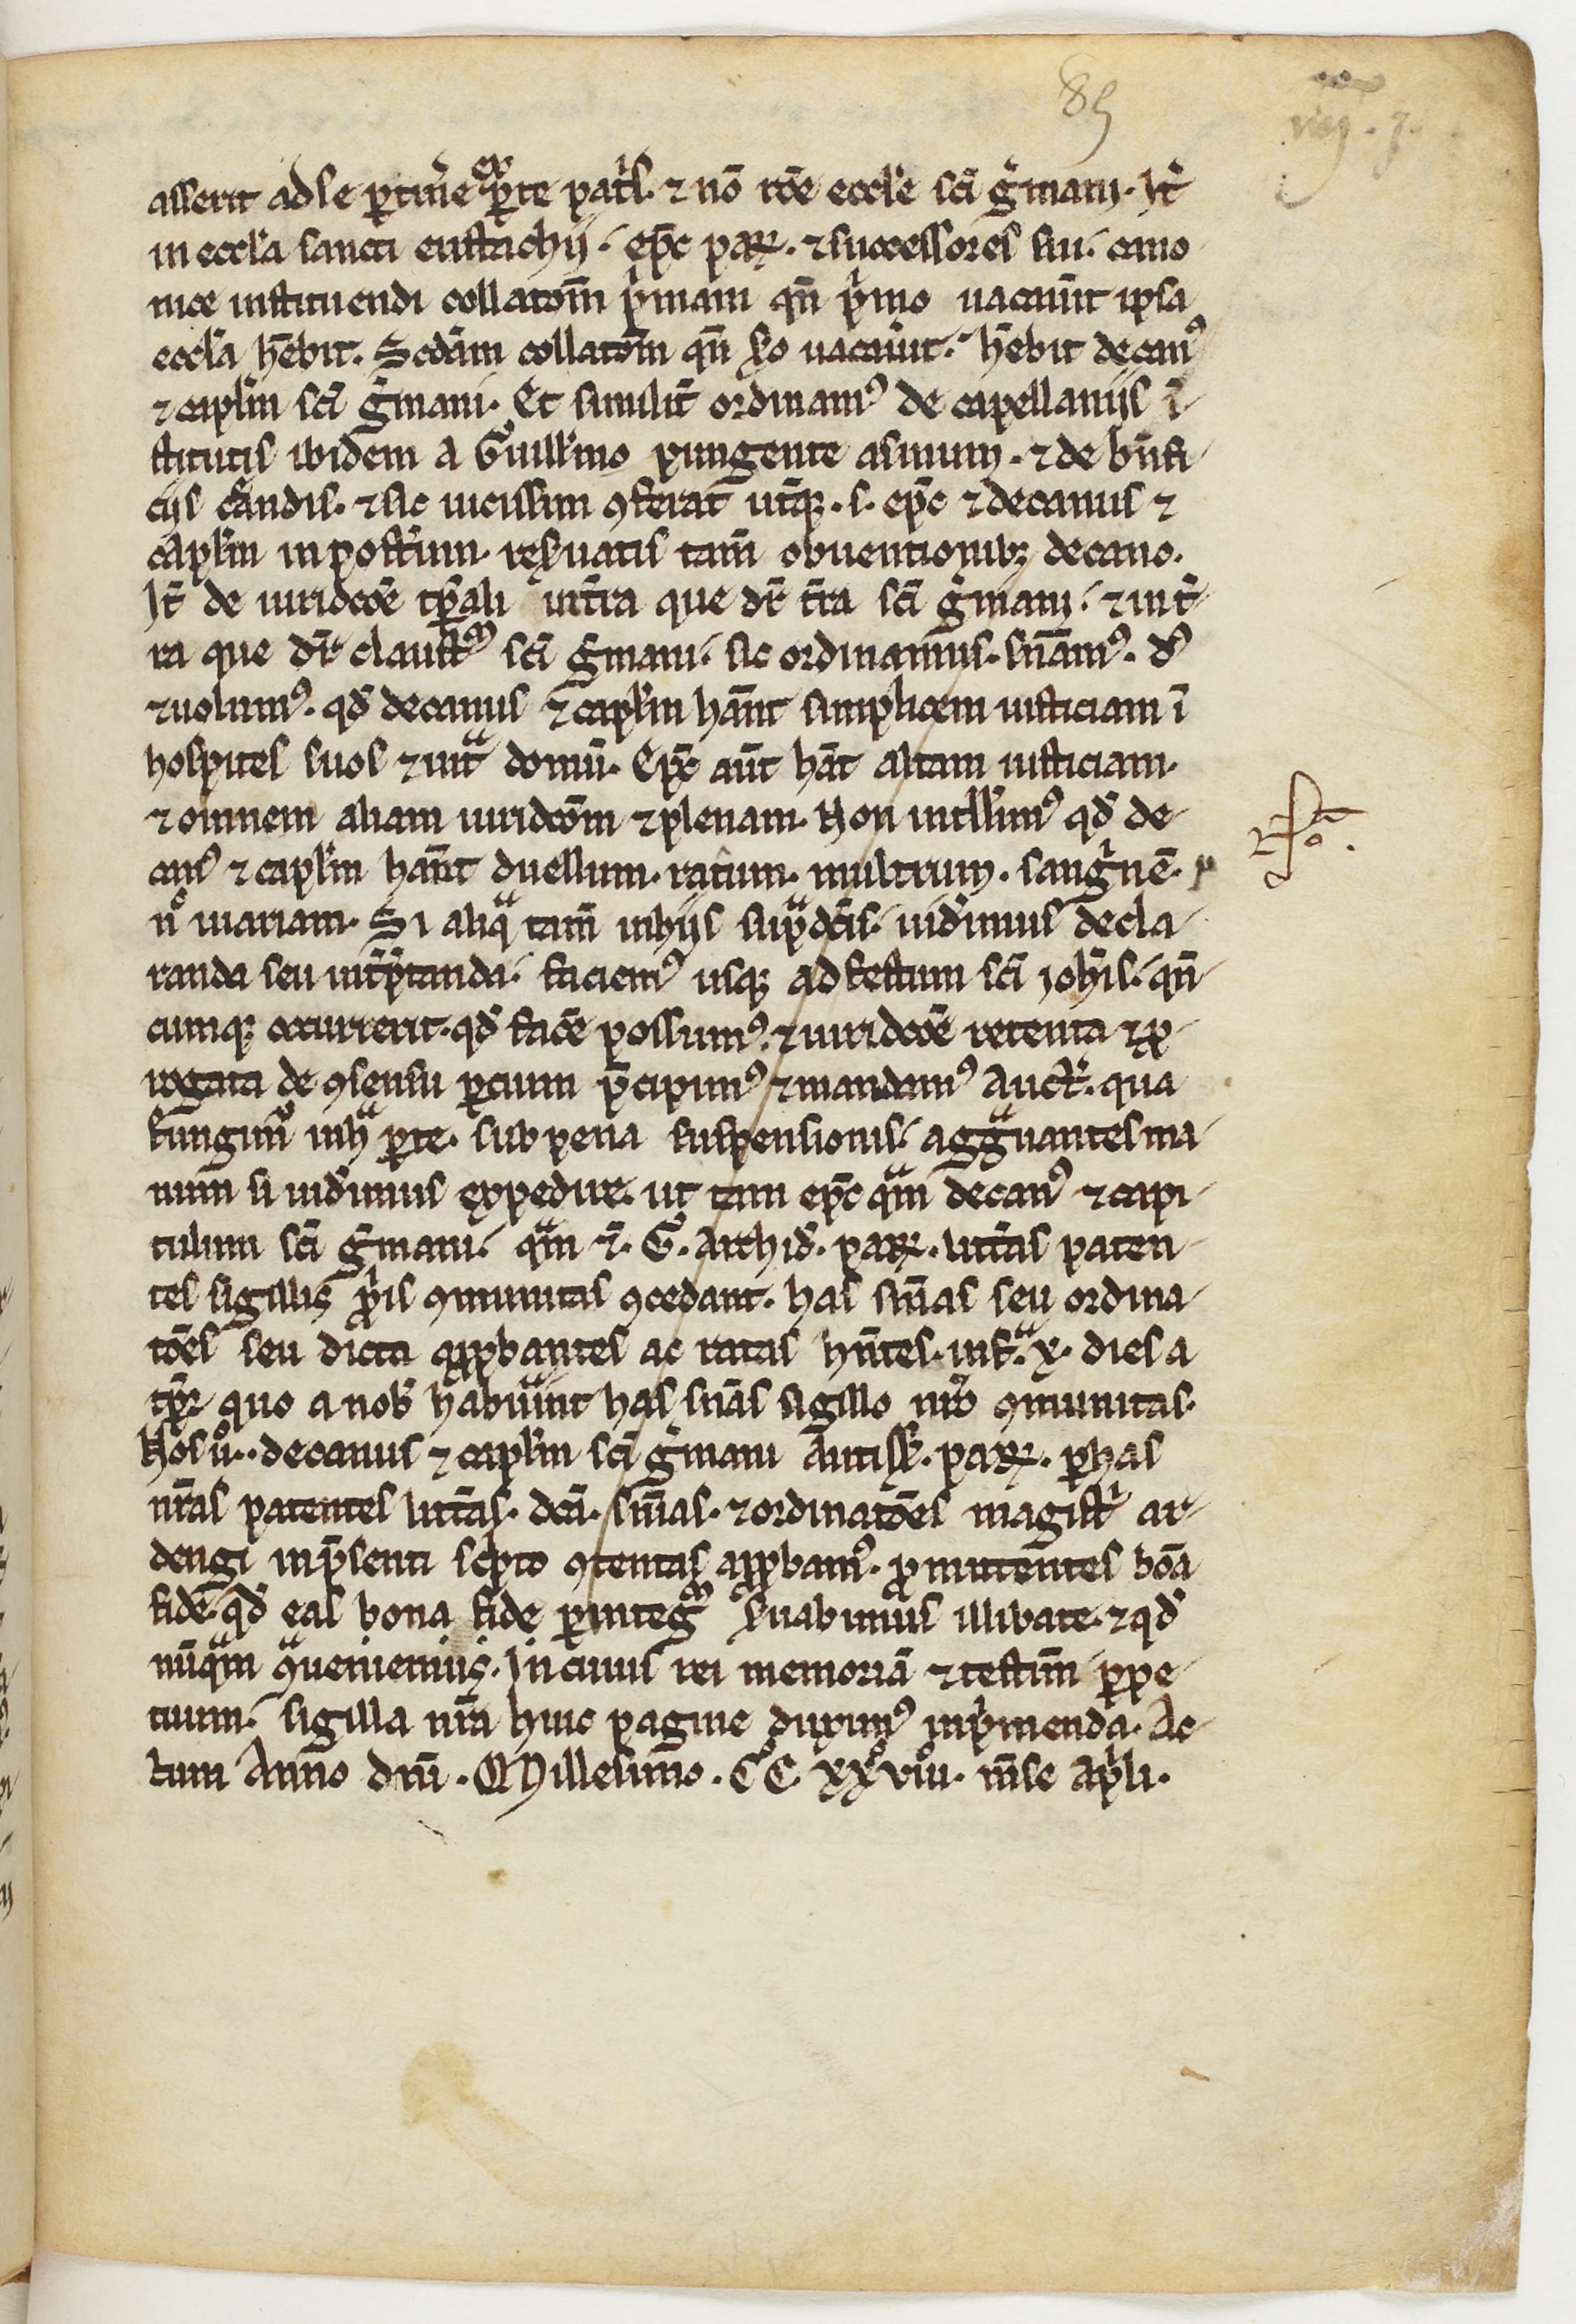 85
asserit ad se ꝑtin̄e ex ꝑte pat̄s. ⁊ nō rōe eccl̄e sc̄i ḡmani. Jt̄
in eccl̄a sancti eustachij. ep̄c par̄. ⁊ successores sui. cano
nice instituendi collatōm p̄mam qn̄ p̄mo uacau̾it ipsa
eccl̄a hēbit. Scd̄am collatōm qn̄ s̾o uacau̾it. hēbit decanꝰ
⁊ capl̄m sc̄i g̾mani. Et simil̾it ordinamꝰ de capellanijs ī
stitutis ibidem a Guill̾mo pungente asinum. ⁊ de bn̄fi
cijs c̾andis. ⁊ sic uicissim ꝯferat ut̾qꝫ .s. ep̄c ⁊ decanus ⁊
capl̄m in post̾um. res̾uatis tam̄ obuentionibꝫ decano.
Jt̄ de iuridc̄oe tp̄ali int̾ra que dr̄ t̾ra sc̄i g̾mani. ⁊ int̾
ra que dr̄ claustꝝ sc̄i g̾mani. sic ordinamus. sn̄iamꝰ. d
⁊ uolumꝰ. qđ decanus ⁊ capl̄m han̄t simplicem iusticiam ī
hospites suos ⁊ int̾ domū. Ep̄c aūt hāt altam iusticiam.
⁊ omnem aliam iuridcōm ⁊ plenam. Non intll̾imꝰ qđ de
canꝰ ⁊ capl̄m han̄t duellum. ratum. multrum. sangⁱnē.
nō uariam. Si aliqᵃ tam̄ inhijs sup̾dc̄is. uid̾imus decla
randa seu int̾p̾tanda. faciemꝰ usqꝫ ad festum sc̄i Joh̾is. qn̄
cumqꝫ occurrerit. qđ fac̾e possumꝰ. ⁊ iuridcōe retenta ⁊ ꝓ
rogata de ꝯsensu ꝑcium p̄cipimꝰ ⁊ mandamꝰ Auct̾. qua
fungimꝰ in hᵃ ꝑte. sub pena suspensionis. aggᵃuantes ma
num si uid̾imus expedire. ut tam ep̄c qᵃm decanꝰ ⁊ capi
tulum sc̄i g̾mani. qᵃm ⁊. G. Archid̾. par̄. litt̾as paten
tes sigillis ꝓp̾is ꝯmunitas ꝯcedant. has sn̄ias seu ordina
tōes seu dicta apꝓbantes ac ratas hn̄tes. infᵃ. x. dies a
tp̄r quo a nob̾ habu̾int has sn̄ias sigillo nr̄o ꝯmunitas.
Nos u̾o.. decanus ⁊ capl̄m sc̄i g̾mani Antiss̾. par̄. ꝑ has
nr̄as patentes litt̾as. dc̄as. sn̄ias. ⁊ ordinatōes magistⁱ ar
dengi in p̄senti sc̾pto ꝯtentas apꝓbamꝰ. ꝓmittentes bōa
fidē. qđ eas bona fide ꝑ integꝝ s̾uabimus illibate. ⁊ qđ
nūqᵃm ꝯtᵃueniemus. Jn cuius rei memoriā ⁊ testim̄ ꝑpe
tuum. sigilla nr̄a huic pagine duximꝰ inp̾menda. Ac
tum Anno dn̄i. Millesimo. C̊C̊. xx̊viii̊. mn̄se Ap̾li.